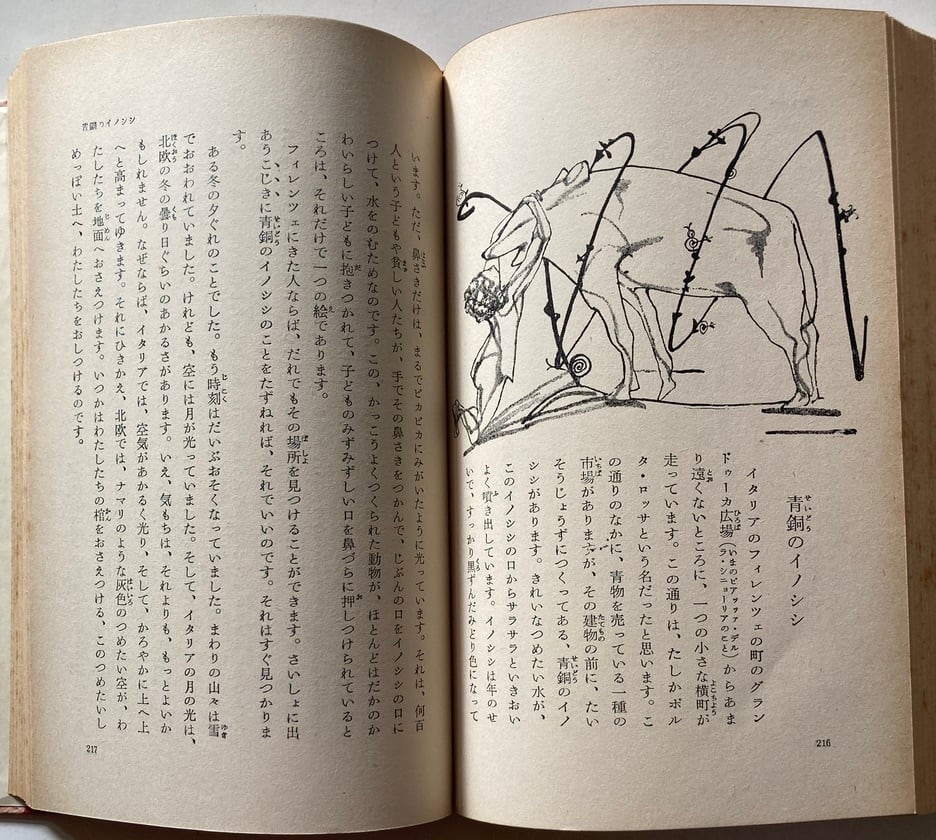 青銅のイノシシ
イタリアのフィレンツェの町のグラン
ドゥーカ広場（いまのピアッツァ・デル・ラ・シニョーリアのこと）からあま
り遠くないところに、一つの小さな横町が
走っています。この通りは、たしかポル
タ・ロッサという名だったと思います。こ
の通りのなかに、青物を売っている一種の
市場がありますが、その建物の前に、たい
そうじょうずにつくってある、青銅のイノ
シシがあります。きれいなつめたい水が、
このイノシシの口からサラサラといきおい
よく噴き出しています。イノシシは年のせ
いで、すっかり黒ずんだみどり色になって
216
います。ただ、鼻さきだけは、まるでピカピカにみがいたように光っています。それは、何百
人という子どもや貧しい人たちが、手でその鼻さきをつかんで、じぶんの口をイノシシの口に
つけて、水をのむためなのです。この、かっこうよくつくられた動物が、ほとんどはだかのか
わいらしい子どもに抱きつかれて、子どものみずみずしい口を鼻づらに押しつけられていると
ころは、それだけで一つの絵であります。
フィレンツェにきた人ならば、だれでもその場所を見つけることができます。さいしょに出
あうこじきに青銅のイノシシのことをたずねれば、それでいいのです。それはすぐ見つかりま
す。
ある冬の夕ぐれのことでした。もう時刻はだいぶおそくなっていました。まわりの山々は雪
でおおわれていました。けれども、空には月が光っていました。そして、イタリアの月の光は、
北欧の冬の曇り日ぐらいのあかるさがあります。いえ、気もちは、それよりも、もっとよいか
もしれません。なぜならば、イタリアでは、空気があかるく光り、そして、かろやかに上へ上
へと高まってゆきます。それにひきかえ、北欧では、ナマリのような灰色のつめたい空が、わ
たしたちを地面へおさえつけます。いつかはわたしたちの棺をおさえつける、このつめたいし
めっぽい土へ、わたしたちをおしつけるのです。
青銅のイノシシ
217